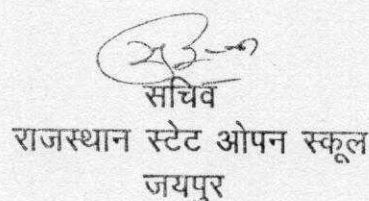 सचिव
राजस्थान स्टेट ओपन स्कूल
जयपुर